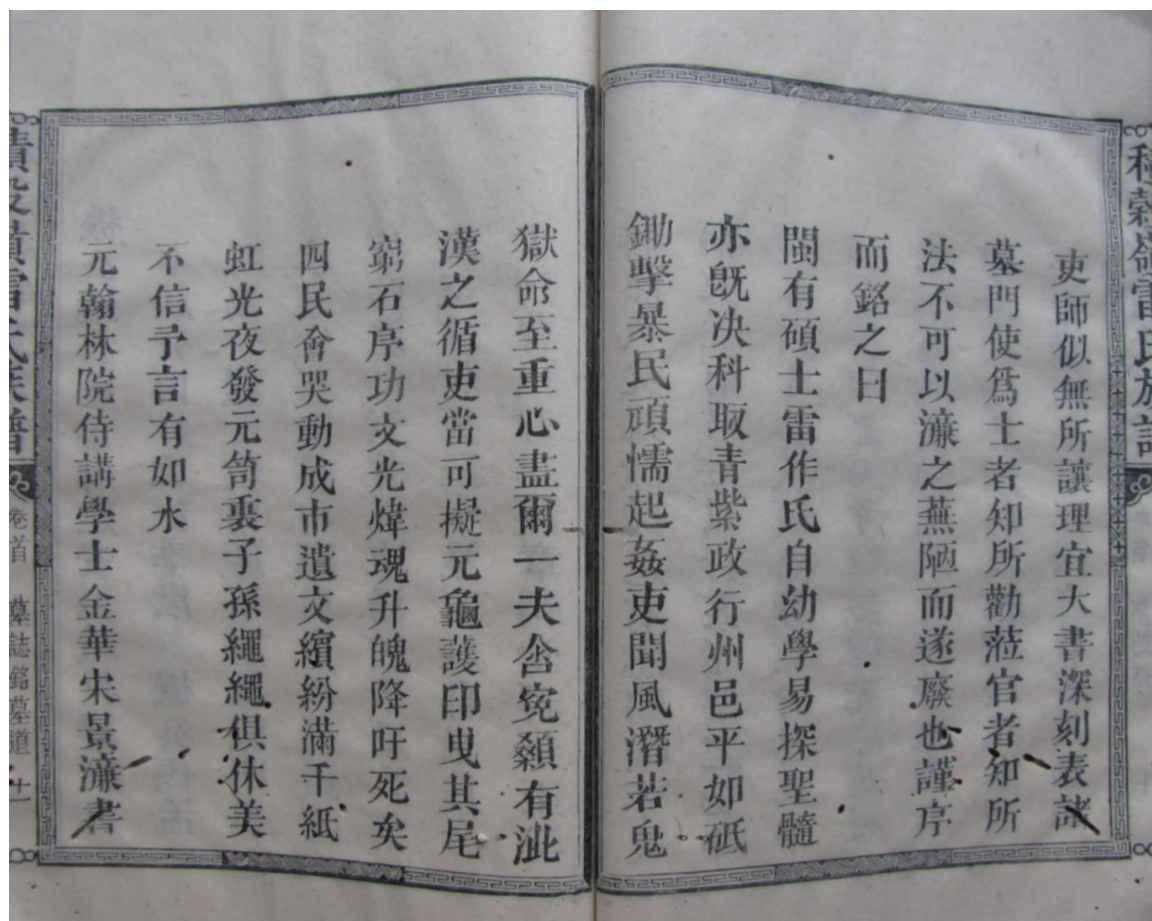 種穀嶺雷氏族譜
吏師似無所讓理宜大書深刻表諸
墓門使爲士者知所勸蒞官者知所
法不可以濂之蕪陋而遂廢也謹序
而銘之曰
閩有碩士雷作氏自幼學易探聖髓
亦旣決科取青紫政行州邑平如砥
鋤擊暴民頑懦起姦吏聞風潛若鬼
獄命至重心盡爾一夫含寃顙有泚
漢之循吏當可擬元龜護印曳其尾
窮石序功文光煒魂升魄降吁死矣
四民會哭動成市遺文繽紛滿千紙
虹光夜發元笥裏子孫繩繩俱休美
不信予言有如水
元翰林院侍講學士金華宋景濂書
雷氏族譜
卷首
墓誌銘墓道
十一